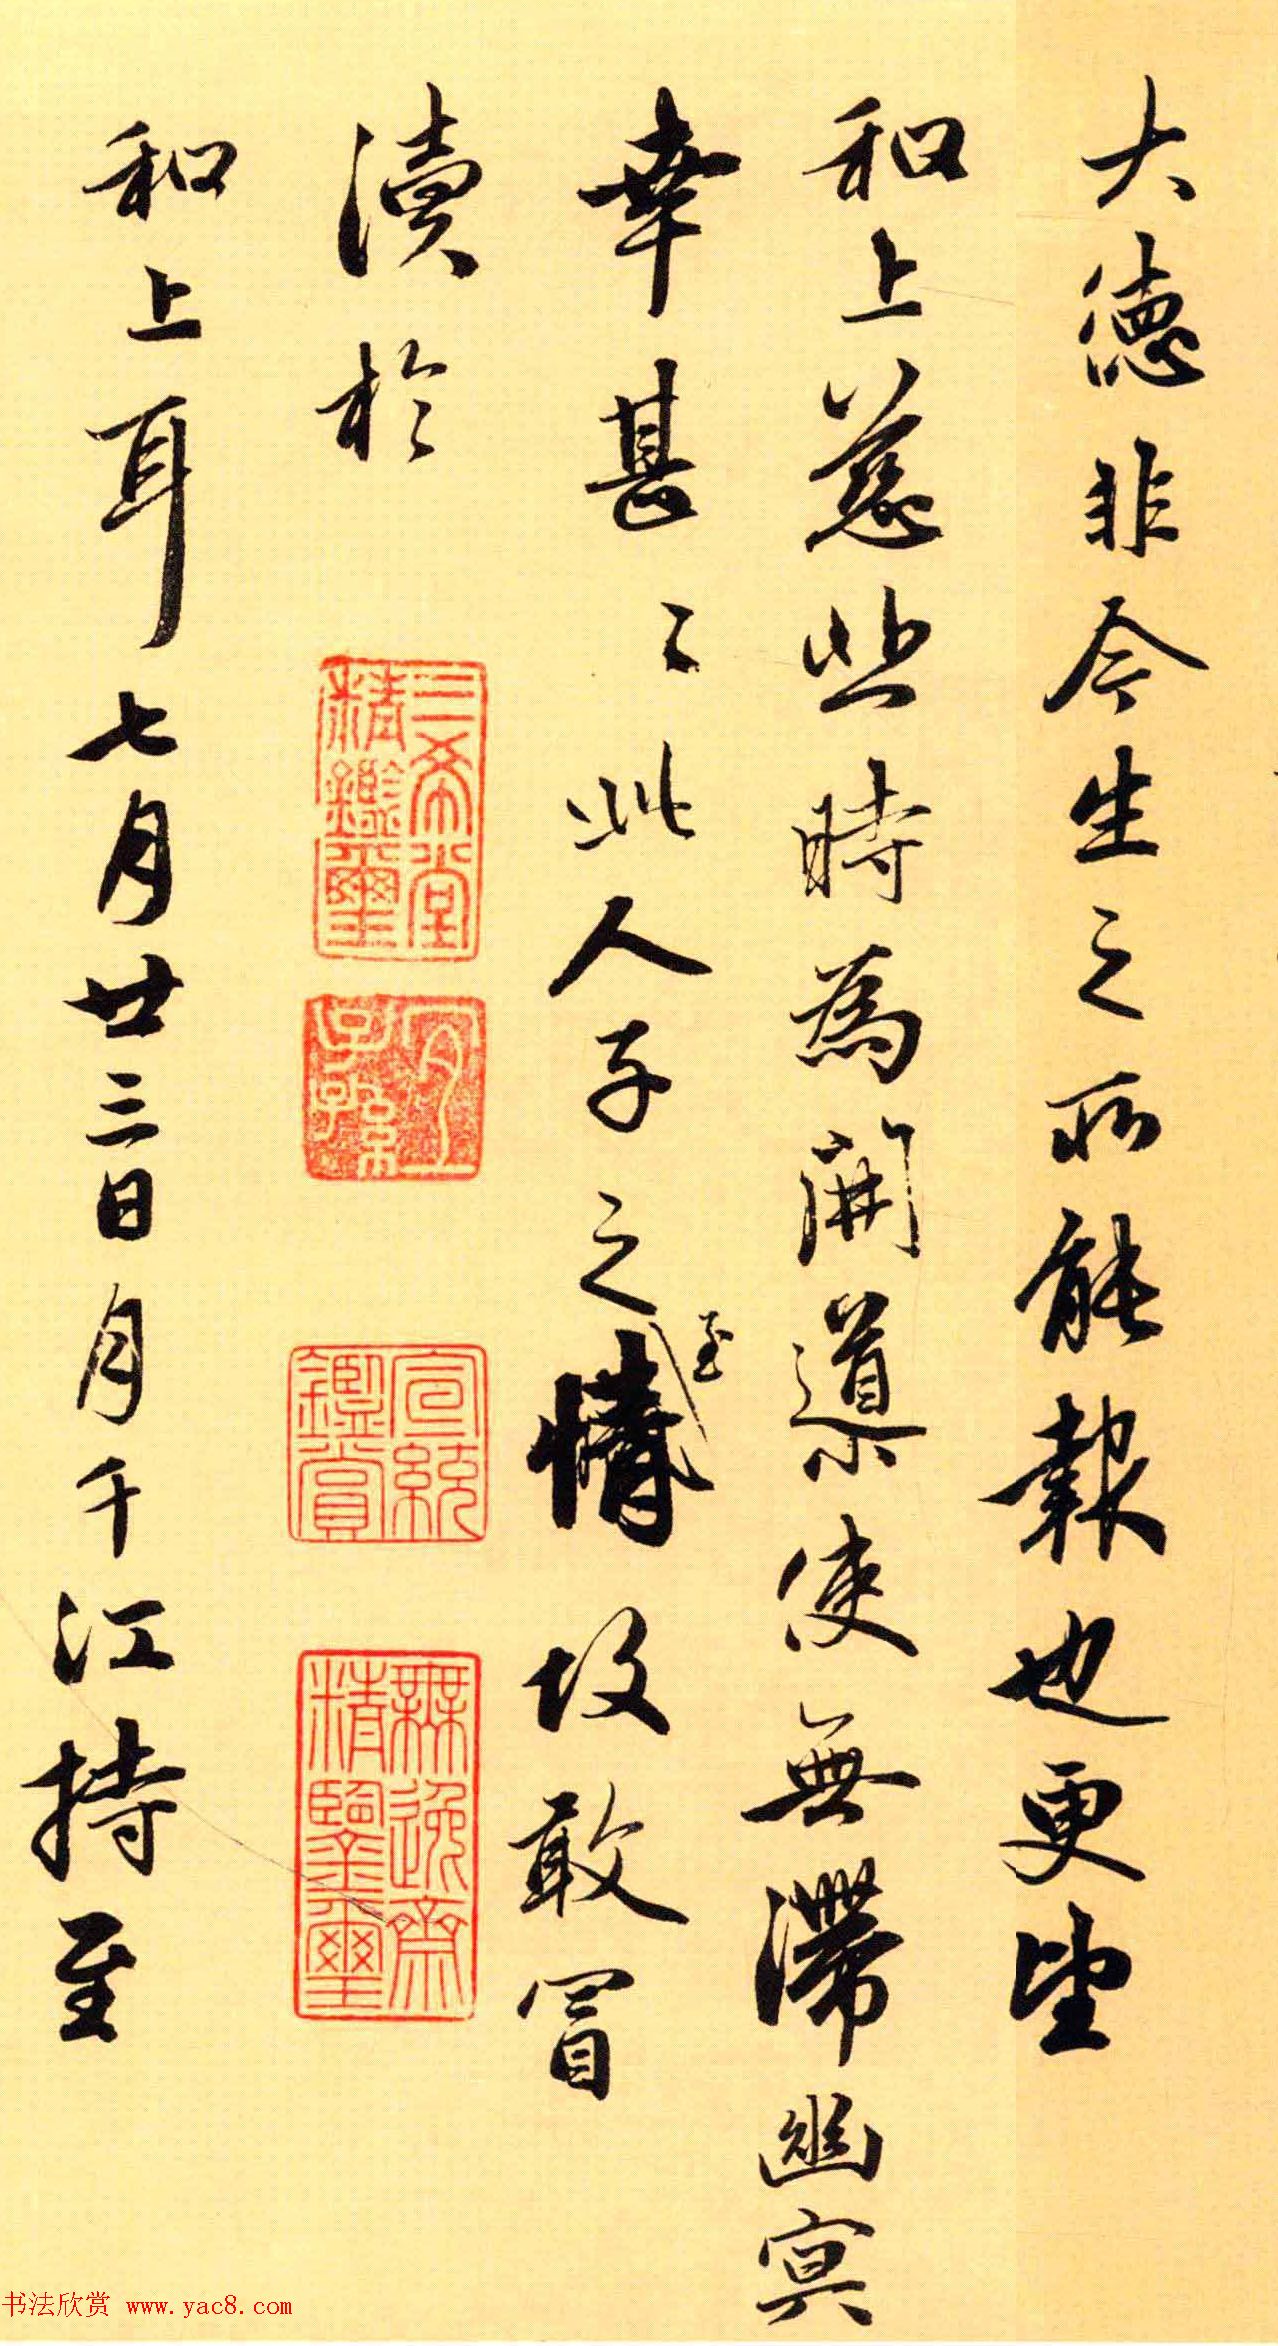 大德非今生之所能報也更望
和上慈悲時為開導使無滯幽冥
幸甚〻此人子之至情故敢冒
瀆於
和上耳七月廿三日月千江持至
三希堂精鑑璽
宜子孫
宣統鑑賞
無逸齋精鑒璽
书法欣赏 www.yac8.com